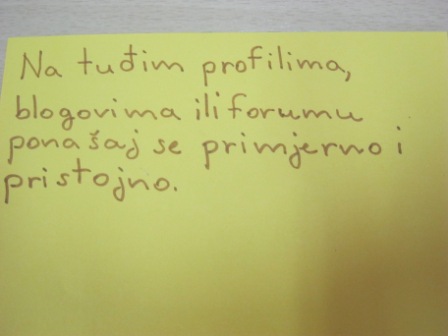 Na tuđim profilima,
blogovima ili forumu
ponašaj se primjerno i
pristojno.